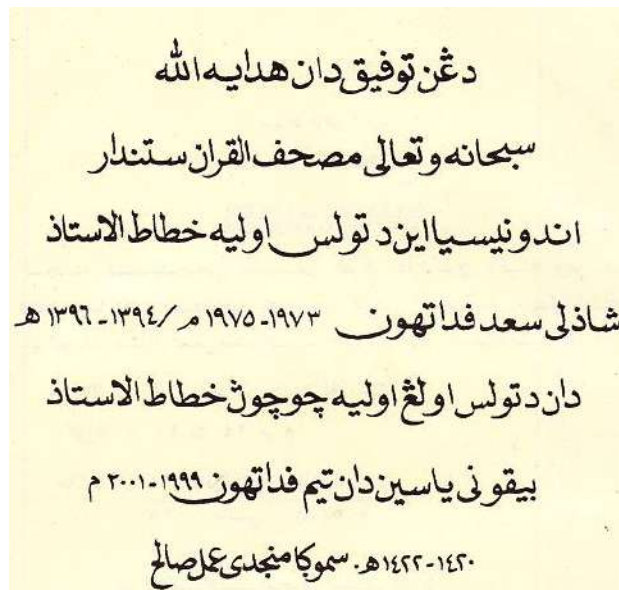 دڠن توفيق دان هدايه الله
سبحانه وتعالى مصحف القران ستندار
اندونيسيا اين دتولس اوليه خطاط الاستاذ
شاذلى سعد فدا تهون ١٩٧٣-١٩٧٥ م/١٣٩٤-١٣٩٦ ھ
دان دتولس اولڠ اوليه چوچوڽ خطاط الاستاذ
بيقونى ياسين دان تيم فدا تهون ١٩٩٩-٢٠٠١ م
١٤٢٠-١٤٢٢ھ. سموݢا منجدى عمل صالح